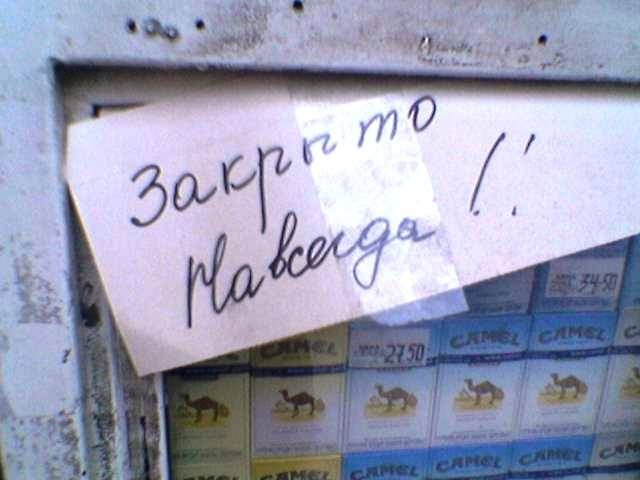 Закрыто
Навсегда !!
34-50
27 50
CAMEL
CAMEL
CAMEL
CAMEL
CAMEL
CAMEL
CAMEL
CAMEL